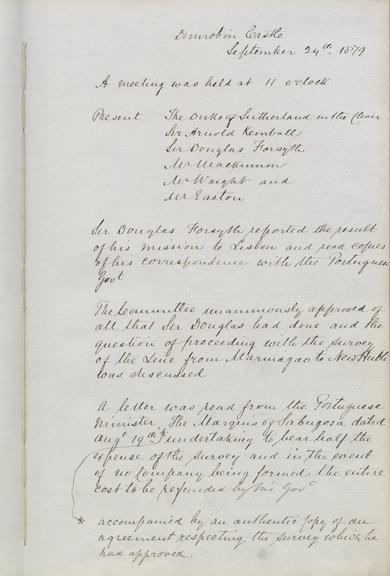 Dunrobin Castle
September 24th. 1879
A meeting was held at 11 o'clock.
Present. The Duke of Sutherland in the Chair
Sir Arnold Kemball
Sir Douglas Forsyth
Mr Mackinnon
Mr Waight and
Mr Easton
Sir Douglas Forsyth reported the result
of his mission to Lisbon and read copies
of his correspondence with the Portuguese
Govt
The Committee unanimously approved of
all that Sir Douglas had done and the
question of proceeding with the survey
of the Line from Marmagao to New Hubli
was discussed.
A letter was read from the Portuguese
Minister, The Marquis of Sabugosa dated
Augt 19th * undertaking to bear half the
expense of the survey and in the event
of no Company being formed the entire
cost to be refunded by his Govt
* accompanied by an authentic copy of an
agreement respecting the survey which he
had approved.